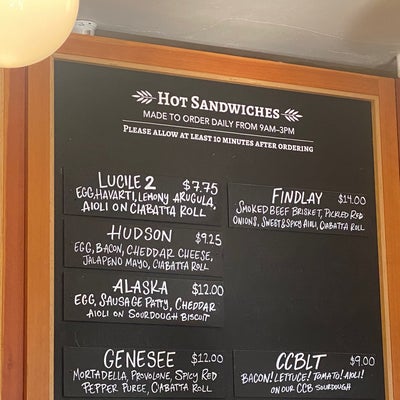 Hot Sandwiches
MADE TO ORDER DAILY FROM 9AM–3PM
Please allow at least 10 minutes after ordering
LUCILE 2 $7.75
EGG, HAVARTI, LEMONY ARUGULA,
AIOLI ON CIABATTA ROLL
HUDSON $9.25
EGG, BACON, CHEDDAR CHEESE,
JALAPENO MAYO, CIABATTA ROLL
ALASKA $12.00
EGG, SAUSAGE PATTY, CHEDDAR
AIOLI ON SOURDOUGH BISCUIT
GENESEE $12.00
MORTADELLA, PROVOLONE, SPICY RED
PEPPER PUREE, CIABATTA ROLL
FINDLAY $14.00
SMOKED BEEF BRISKET, PICKLED RED
ONIONS, SWEET & SPICY AIOLI, CIABATTA ROLL
CCBLT $9.00
BACON! LETTUCE! TOMATO! AIOLI!
ON OUR CCB SOURDOUGH